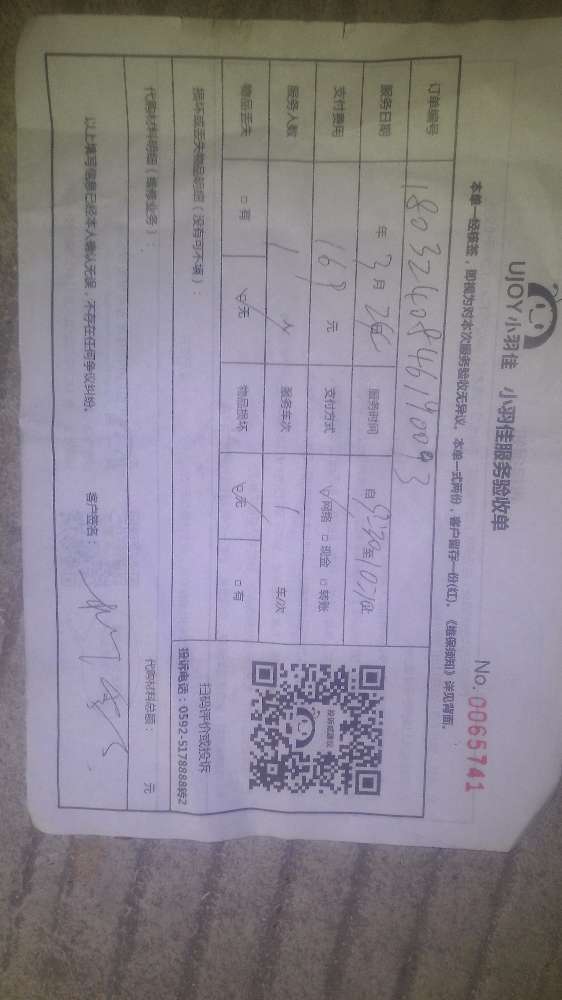 UJOY 小羽佳 小羽佳服务验收单
No. 0065741
本单一经核签，即视为对本次服务验收无异议。本单一式两份，客户留存一份(红)。《维保须知》详见背面。
订单编号
服务日期 年 3月 26日 服务时间 自 9:30至
支付费用 169 元 支付方式 ☑网络 □现金 □转账
服务人数 1人 服务车次 1 车/次
物品丢失 □有 ☑无 物品损坏 ☑无 □有
损坏或丢失物品明细（没有可不填）：
投诉或建议
扫码评价或投诉
投诉电话：0592-5178888转2
代购材料明细（维修业务）： 代购材料总额： 元
以上填写信息已经本人确认无误，不存在任何争议纠纷。 客户签名：